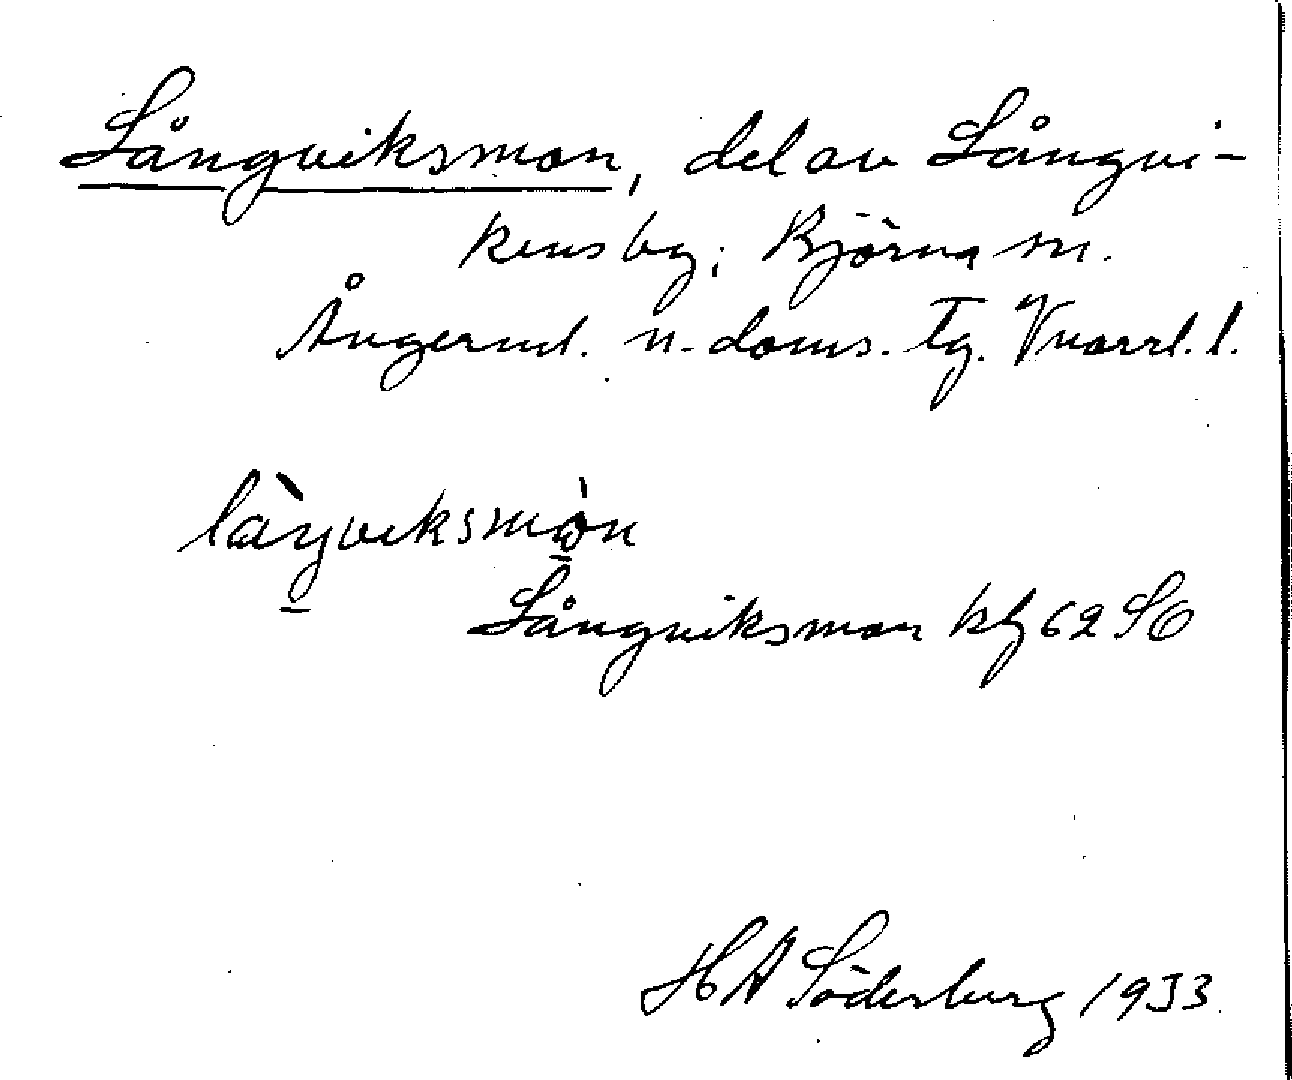 Långviksmon, del av Långvi-
kens by; Björna sn.
Ångerml. n. doms. tg. Vnorrl. l.
làŋviksmòn
Långviksmon kbl 62 SO
HA Söderberg 1933.